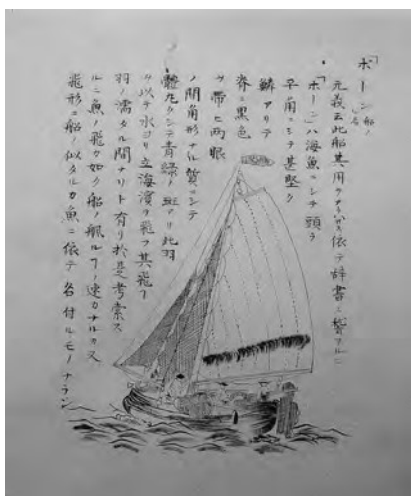 「ホーン」船ノ名
元義云此船其用ヲナスニ依テ辞書ニ稽フルニ
「ホーン」ハ海魚ニシテ頭ヲ
平角ニシテ甚堅ク
鱗アリテ
脊ニ黒色
ヲ帯ヒ両眼
ノ間角形ナル質ニシテ
體丸クシテ青緑ノ斑アリ此羽
ヲ以テ水ヨリ立海濱ヲ飛フ其飛フ
羽ノ濡タル間ナリト有リ於是考索ス
ルニ魚ノ飛カ如ク船ノ颿ルヿノ速カナルカ又
飛形ニ船ノ似タルカ魚ニ依テ名付ルモノナラン